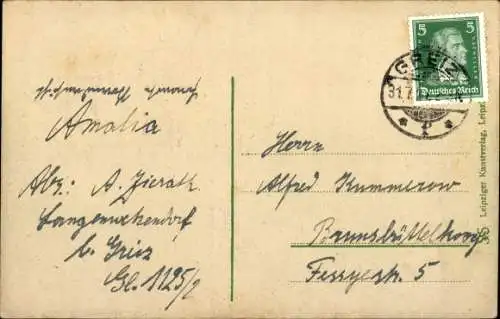 Amalia
Abs: A. Zierath
Langenwetzendorf
b. Greiz
Gl. 1125/2
Herrn
Alfred Kummerow
Brunsbüttelkoog
str. 5
5 5
Deutsches Reich
GREIZ
31.7.
Leipziger Kunstverlag, Leipz